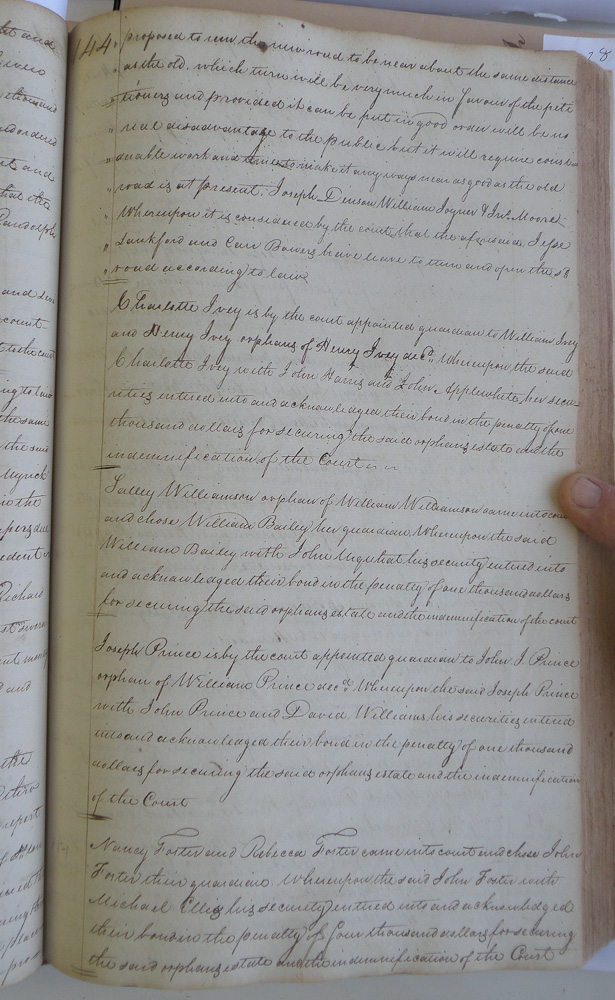 144
" proposed to run the new road to be near about the same distance
" as the old. which turn will be very much in favour of the peti
" tioners and provided it can be put in good order will be no
" real disadvantage to the public but it will require consi
" derable work and to make it any ways near as good as the old
" road is at present. Joseph Denson William Joyner & Jno. Moore
" Whereupon it is considered by the court that the aforesaid Jesse
" Lankford and Carr Bowers have leave to turn and open the sd
" road according to law
Charlotte Ivey is by the court appointed guardian to William Ivey
and Henry Ivey orphans of Henry Ivey decd. Whereupon the said
Charlotte Ivey with John Harris and John Applewhite her secu
rities entered into and acknowledged their bond in the penalty of one
thousand dollars for securing the said orphans estate and the
indemnification of the Court
Salley Williamson orphan of William Williamson came into court
and chose William Bailey her guardian Whereupon the said
William Bailey with John Urquhat his security entered into
and acknowledged their bond in the penalty of one thousand dollars
for securing the said orphans estate and the indemnification of the court
Joseph Prince is by the court appointed guardian to John J. Prince
orphan of William Prince decd. Whereupon the said Joseph Prince
with John Prince and David Williams his securities entered
into and acknowledged their bond in the penalty of one thousand
dollars for securing the said orphans estate and the indemnification
of the Court
Nancy Foster and Rebecca Foster came into court and chose John
Foster their guardian. Whereupon the said John Foster with
Michael Ellis his security entered into and acknowledged
their bond in the penalty of four thousand dollars for securing
the said orphans estate and the indemnification of the Court